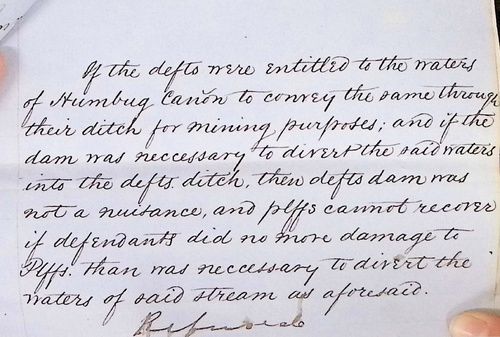 If the defts were entitled to the waters
of Humbug Cañon to convey the same through
their ditch for mining purposes; and if the
dam was neccessary to divert the said waters
into the defts. ditch, then defts dam was
not a nuisance, and plffs cannot recover
if defendants did no more damage to
Plffs. than was neccessary to divert the
waters of said stream as aforesaid.
Refused